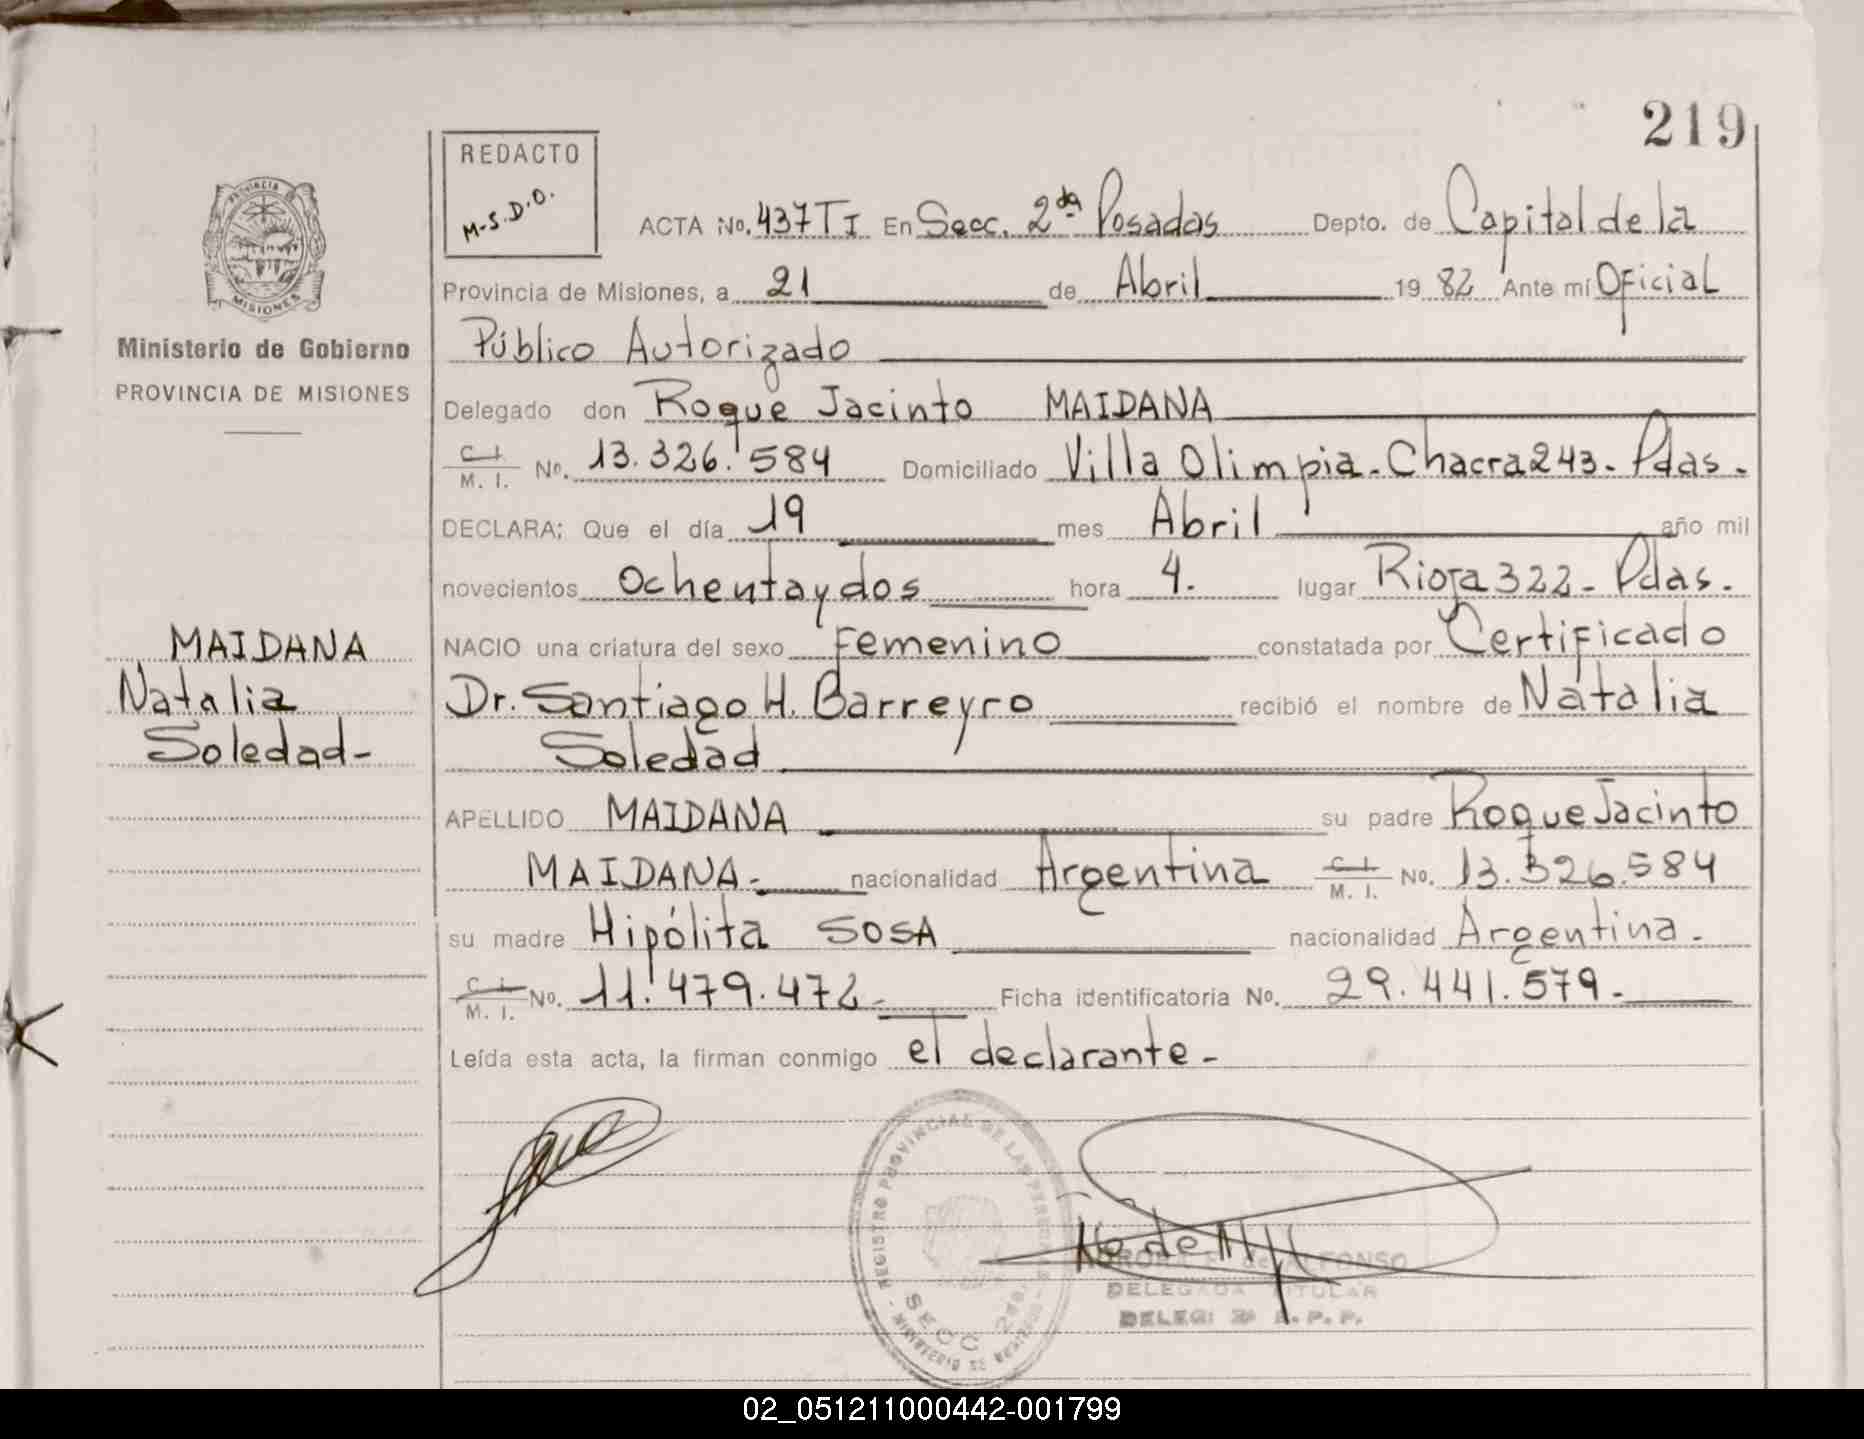 219
REDACTO
M-S.D.O.
ACTA No. 437 TI En Secc. 2da Posadas Depto. de Capital de la
Provincia de Misiones, a 21 de Abril 19 82 Ante mí Oficial
Público Autorizado
Delegado don Roque Jacinto MAIDANA
C. I. M. I. No. 13.326.584 Domiciliado Villa Olimpia-Chacra 243-Pdas-
DECLARA; Que el día 19 mes Abril año mil
novecientos Ochentaydos hora 4. lugar Rioja 322-Pdas.
NACIO una criatura del sexo Femenino constatada por Certificado
Dr. Santiago H. Barreyro recibió el nombre de Natalia
Soledad
APELLIDO MAIDANA su padre Roque Jacinto
MAIDANA- nacionalidad Argentina C. I. M. I. No. 13.326.584
su madre Hipólita SOSA nacionalidad Argentina-
C. I. M. I. No. 11.479.472- Ficha identificatoria No. 29.441.579-
Leída esta acta, la firman conmigo el declarante-
PROVINCIA
MISIONES
Ministerio de Gobierno
PROVINCIA DE MISIONES
MAIDANA
Natalia
Soledad-
REGISTRO PROVINCIAL DE LAS PERSONAS
SECC 2da.
DELEGADA TITULAR
02_051211000442-001799